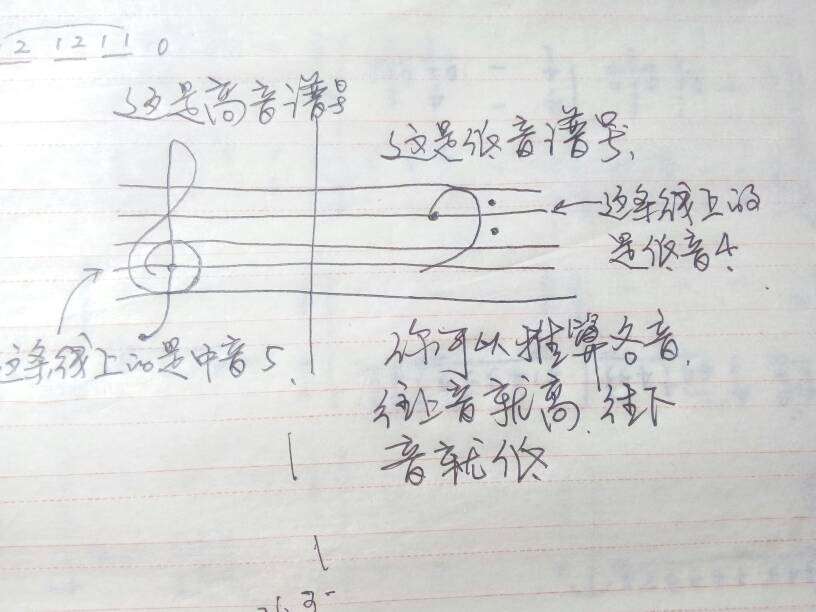 2 1211 0
这是高音谱号
这是低音谱号,
这条线上的
是低音4.
这条线上的是中音5.
你可以推算各音,
往上音就高,往下
音就低